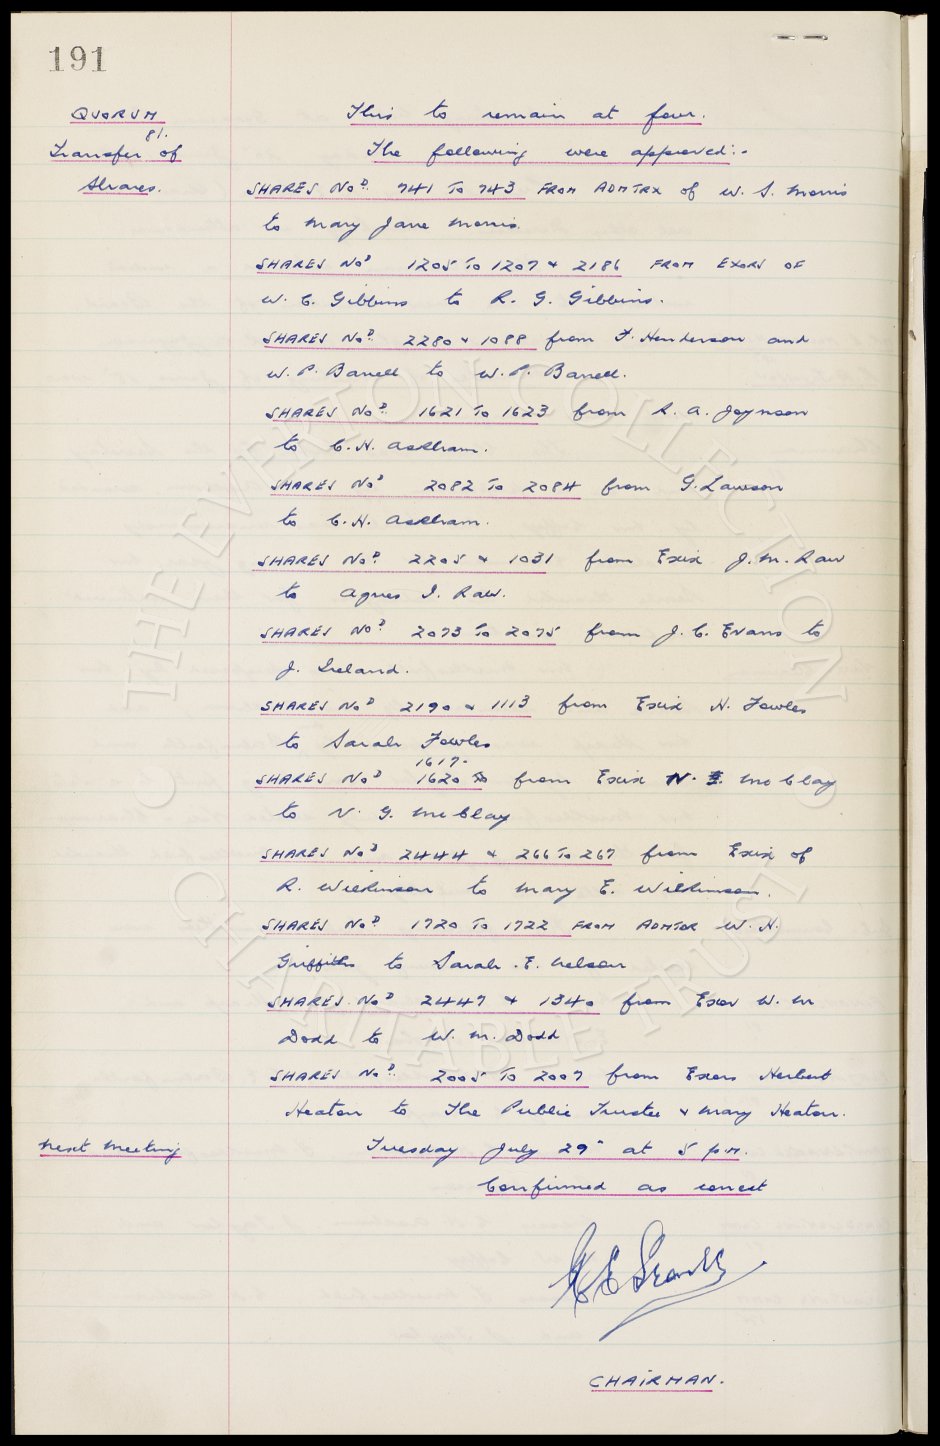 191
QUORUM
This to remain at four.
81.
Transfer of
Shares.
The following were approved:-
SHARES NOS. 741 TO 743 FROM ADMTRX of W. S. Morris
to Mary Jane Morris.
SHARES NOS 1205 TO 1207 & 2186 FROM EXORS OF
W. C. Gibbins to R. G. Gibbins.
SHARES NOS. 2280 & 1088 from F. Henderson and
W. P. Barrell to W. P. Barrell.
SHARES NOS. 1621 TO 1623 from R. A. Joynson
to C. H. Askham.
SHARES NOS 2082 TO 2084 from G. Lawson
to C. H. Askham.
SHARES NOS. 2205 & 1031 from Exix J. M. Raw
to Agnes I. Raw.
SHARES NOS. 2073 TO 2075 from J. C. Evans to
J. Ireland.
SHARES NOS 2190 & 1113 from Exix H. Fowles
to Sarah Fowles
1617-
SHARES NOS 1620 from Exix N. McClay
to N. G. McClay
SHARES NOS 2444 & 266 TO 267 from Exix of
R. Wilkinson to Mary E. Wilkinson.
SHARES NOS. 1720 TO 1722 FROM ADMTOR W. H.
Griffiths to Sarah .E. Nelson
SHARES. NOS 2447 & 1340 from Exor W. M
Dodd to W. M. Dodd
SHARES NOS. 2005 TO 2007 from Exors Herbert
Heaton to The Public Trustee & Mary Heaton.
Next Meeting
Tuesday July 29th at 5 p.m.
Confirmed as correct
CHAIRMAN.
THE EVERTON COLLECTION
CHARITABLE TRUST